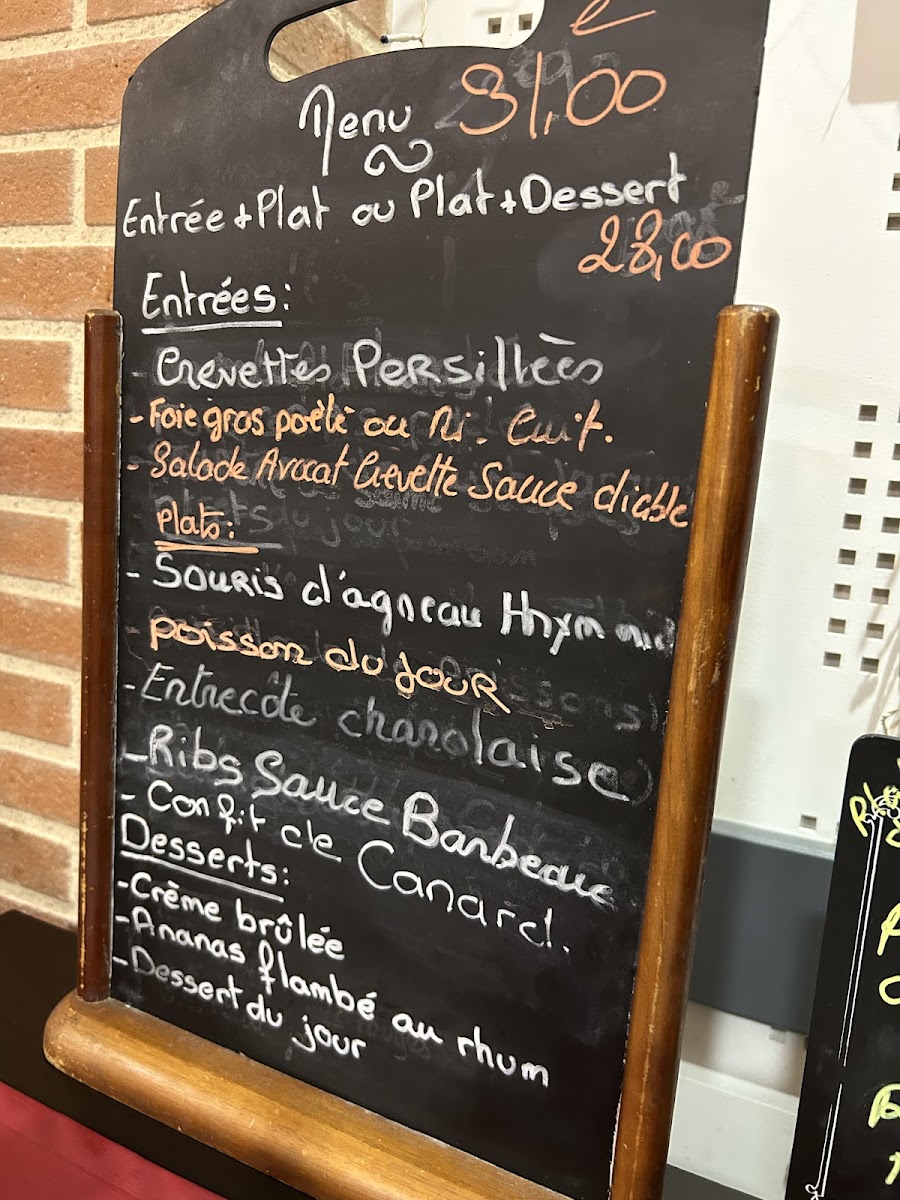 e
Menu 31,00
Entrée + Plat ou Plat + Dessert
28,00
Entrées:
- Crevettes Persillèès
- Foie gras poêlé ou Mi. Cuit.
- Salade Avocat Crevette Sauce diable
Plats:
- Souris d'agneau Thym miel
- poisson du jour
- Entrecôte charolaise
- Ribs Sauce Barbeaue
- Confit de Canard.
Desserts:
- Crème brûlée
- Ananas flambé au rhum
- Dessert du jour